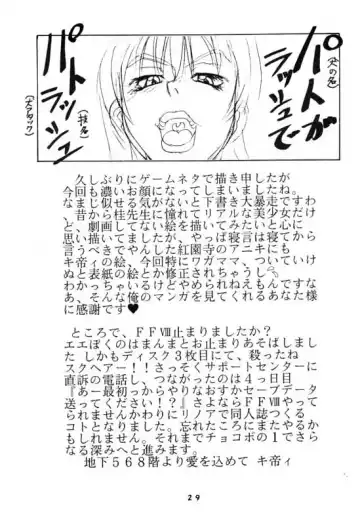 パトが
(犬の名)
ラッシュで
パト
ラッシュ
(技名)
(犬アタック)
久しぶりにゲームネタで描き申したが
今回も濃いお顔になってしまいましたね。
なまじ似せる気がないと下書き大暴走ですわ
、昔から桂先生に憧れてリアルな美少女だけ
ど、劇画してない絵を描いてみたいと心に
思い描いてましたが、やっぱ寝言は寝てから
言うべきでやんした。紅園寺のアニキにも
キ帝ィの絵、今回特にワガママ、ついていけ
ぬと表紙の絵とか修正されちゃうし。
わかっちゃいるけどやめられねえもんですな
あ、そんな俺のマンガを見てくれるあなた様
に感謝です♥
ところで、FFⅧ止まりましたか?
エエぼくのはまんまとお止まりあそばしまし
た しかもディスク3枚目にて、殺ったね
スクヘアー!!さっそくサポートセンターに
直訴の電話し、つながったのは4っ日目
『あー最初っからやりなおすかセーブデータ
送ってください!?』さよならFFⅧやって
られませんかわりにリノアで同人誌つくる
コトとなりました。忘れたころにまたやるか
もしれません。それまでチョコボの1でさら
なる深みへと進みます。
地下568階より愛を込めて キ帝ィ
29